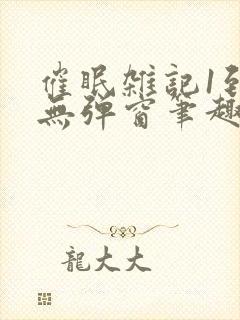 催眠雑記1至
無弹窗筆趣
龍大大